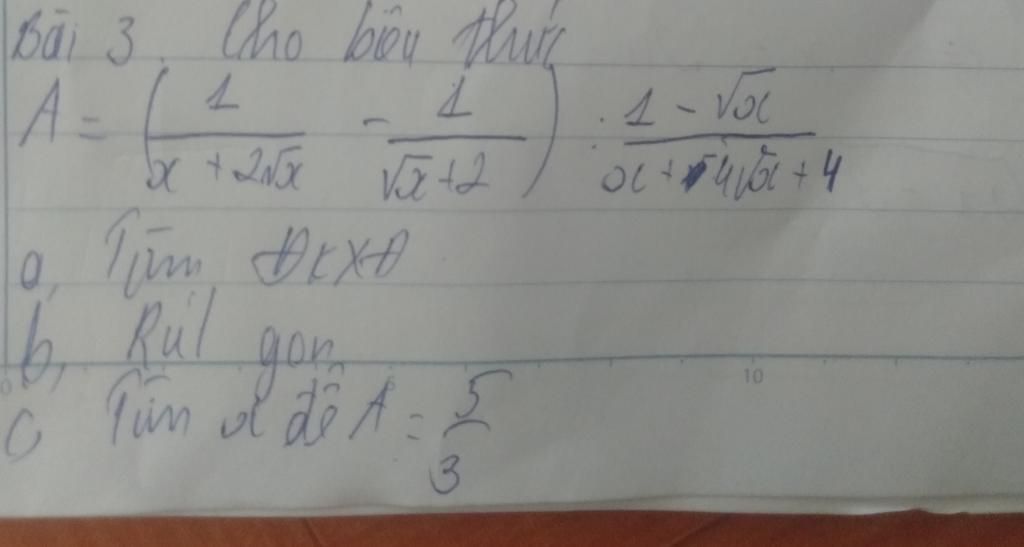 Bài 3. Cho biểu thức
A = ( 1/(x + 2√x) - 1/(√x + 2) ) : (1 - √x)/(x + 4√x + 4)
a, Tìm ĐKXĐ
b, Rút gọn
c Tìm x để A = 5/3
0 5 10